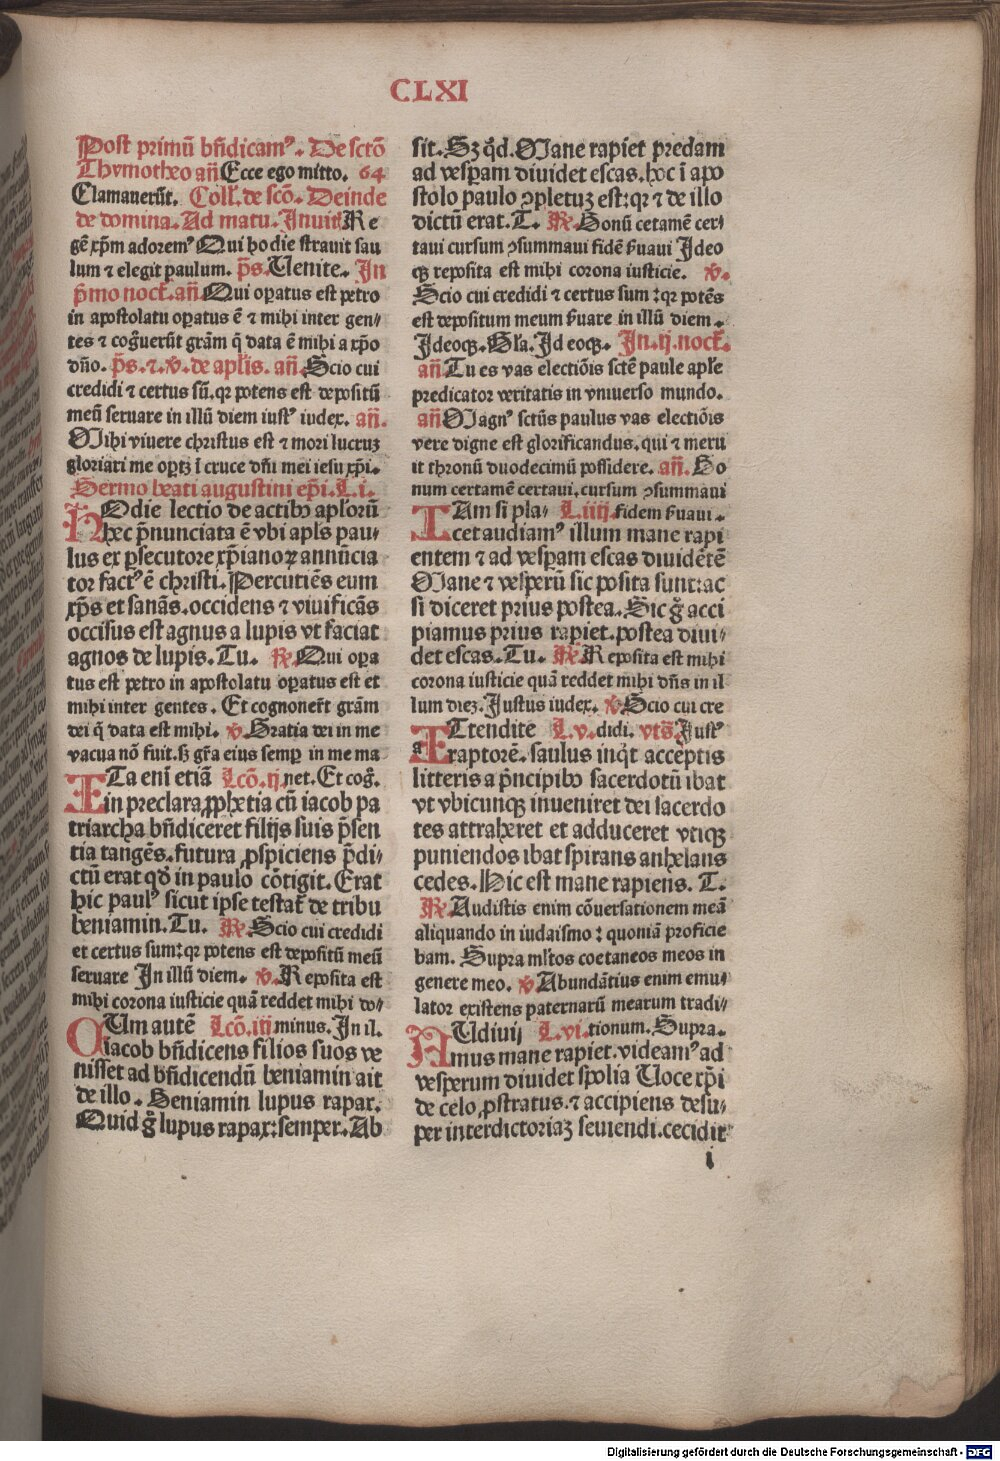 CLXI
Post primū bn̄dicamꝰ. De sctō
Thymotheo an̄ Ecce ego mitto. 64
Clamauerūt. Coll. de scō. Deinde
de domina. Ad matu. Inuit Re
gē xp̄m adoremꝰ Qui hodie strauit sau
lum ⁊ elegit paulum. p̄s. Uenite. In
p̄mo noct. an̄. Qui oꝑatus est petro
in apostolatu oꝑatus ē ⁊ mihi inter gen/
tes ⁊ cog̃uerūt grām q̄ data ē mihi a xp̄o
dn̄o. p̄s. ⁊. v̄. de aplis. an̄. Scio cui
credidi ⁊ certus sū. qꝛ potens est depositū
meū seruare in illū diem iustꝰ iudex. an̄.
Mihi viuere christus est ⁊ mori lucruꝫ
gloriari me oꝑtꝫ ī cruce dn̄i mei iesu xp̄i.
Sermo beati augustini ep̄i. L. i.
HOdie lectio de actibꝰ aplorū
hec p̄nunciata ē vbi apls pau/
lus ex ꝑsecutore xp̄ianoꝝ annūcia
tor factꝰ ē christi. Percutiēs eum
xp̄s et sanās. occidens ⁊ viuificās
occisus est agnus a lupis vt faciat
agnos de lupis. Tu. ℟. Qui oꝑa
tus est petro in apostolatu oꝑatus est et
mihi inter gentes. Et cognouer̄t grām
dei q̄ data est mihi. v̄. Gratia dei in me
vacua nō fuit. sꝫ gr̄a eius semꝑ in me ma
ITa eni etiā Lcō. ij. net. Et cog̃.
in preclara ꝓph̄etia cū iacob pa
triarcha bn̄diceret filijs suis p̄sen
tia tangēs. futura ꝓspiciens p̄di/
ctū erat qd̄ in paulo cōtigit. Erat
hic paulꝰ sicut ipse testat̄ de tribu
beniamin. Tu. ℟. Scio cui credidi
et certus sum: qꝛ potens est depositū meū
seruare In illū diem. v̄. Reposita est
mihi corona iusticie quā reddet mihi do/
CUm autē Lcō. iij minus. In il.
iacob bn̄dicens filios suos ve
nisset ad bn̄dicendū beniamin ait
de illo. Beniamin lupus rapax.
Quid g̃ lupus rapax: semper. Ab
sit. Sꝫ qd̄. Mane rapiet predam
ad vesꝑam diuidet escas. hoc ī apo
stolo paulo ꝯpletuꝫ est: qꝛ ⁊ de illo
dictū erat. T. ℟. Bonū cetamē cer/
taui cursum ꝯsummaui fidē ẜuaui Ideo
qꝫ reposita est mihi corona iusticie. v̄.
Scio cui credidi ⁊ certus sum: qꝛ potēs
est depositum meum ẜuare in illū diem.
Ideoqꝫ. Gl̄a. Id eoqꝫ. In. ij. noct.
an̄ Tu es vas electiōis sctē paule aplē
predicator veritatis in vniuerso mundo.
an̄ Magnꝰ sctūs paulus vas electiōis
vere digne est glorificandus. qui ⁊ meru
it thronū duodecimū possidere. an̄. Bo
num certamē certaui. cursum ꝯsummaui
TAm si pla/ L. iiij. fidem ẜuaui.
cet audiamꝰ illum mane rapi
entem ⁊ ad vesꝑam escas diuidētē
Mane ⁊ vesperū sic posita sunt: ac
si diceret prius postea. Sic g̃ acci
piamus prius rapiet. postea diui/
det escas. Tu. ℟. Reposita est mihi
corona iusticie quā reddet mihi dn̄s in il
lum dieꝫ. Justus iudex. v̄ Scio cui cre
ATtendite L. v. didi. vts̄. Justꝰ
raptorē. saulus inq̄t acceptis
litteris a p̄ncipibꝰ sacerdotū ibat
vt vbicunqꝫ inueniret dei sacerdo
tes attraheret et adduceret vtiqꝫ
puniendos ibat spirans anhelans
cedes. Hic est mane rapiens. T.
℟. Audistis enim cōuersationem meā
aliquando in iudaismo: quoniā proficie
bam. Supra ml̄tos coetaneos meos in
genere meo. v̄ Abundātius enim emu/
lator existens paternarū mearum traditi/
AUdiuij L. vi. tionum. Supra.
mus mane rapiet. videamꝰ ad
vesperum diuidet spolia Uoce xp̄i
de celo ꝓstratus. ⁊ accipiens desu/
per interdictoriaꝫ seuiendi. cecidit
i
Digitalisierung gefördert durch die Deutsche Forschungsgemeinschaft - DFG